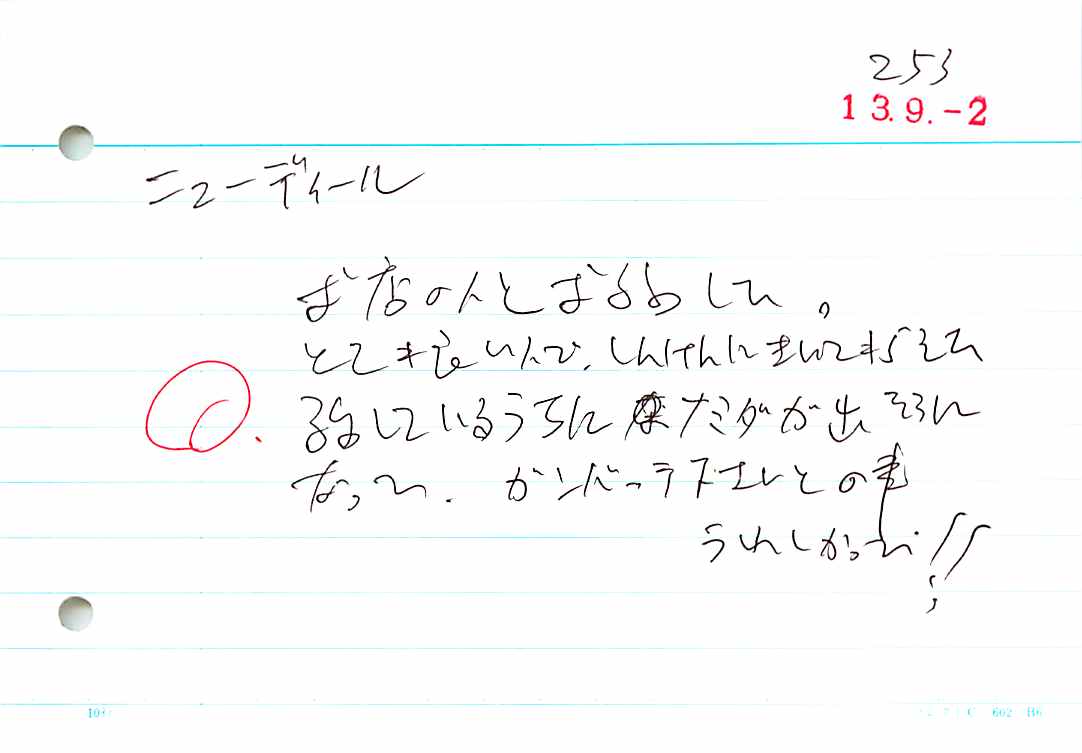 253
13.9.-2
ニューディール
お店の人とお話して。
とても良い人で、しんけんにきいてもらえて
話しているうちにナミダが出そうに
なった。ガンバッテ下さいとの事
うれしかった!!